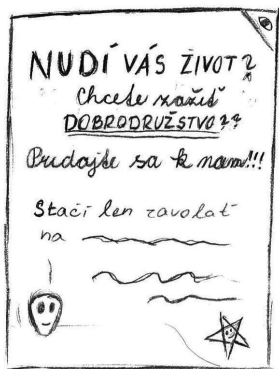 NUDÍ VÁS ŽIVOT?
Chcete zažiť
DOBRODRUŽSTVO??
Pridajte sa k nam!!!
Stačí len zavolať
na